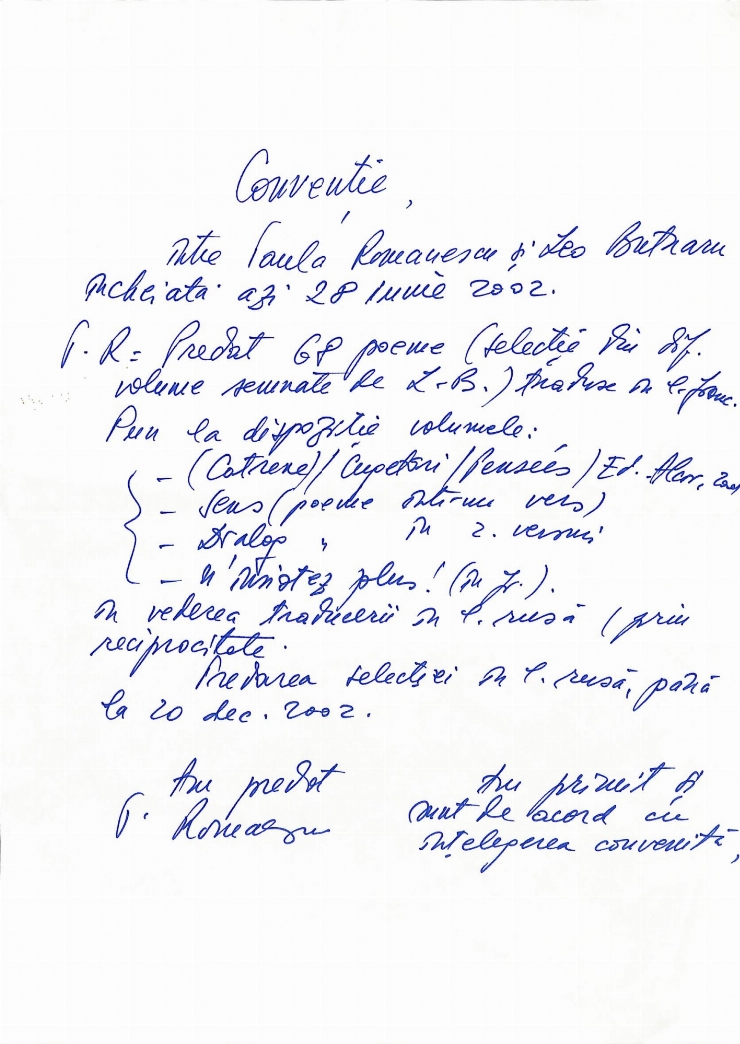 Convenție,
între Paula Romanescu și Leo Butnaru
încheiată azi 28 iunie 2002.
P. R = Predat 68 poeme (selecție din dif.
volume semnate de L-B.) traduse în l. franc.
Pun la dispoziție volumele:
- (Catrene) / Cugetări / Pensées / Ed. Alcor, 2001
- Sens (poeme într-un vers)
- Dialog " în 2. versuri
- N'insistez plus! (în fr.).
în vederea traducerii în l. rusă (prin
reciprocitate.
Predarea selecției în l. rusă, până
la 20 dec. 2002.
Am predat
P. Romanescu
Am primit și
sunt de acord cu
înțelegerea convenită,